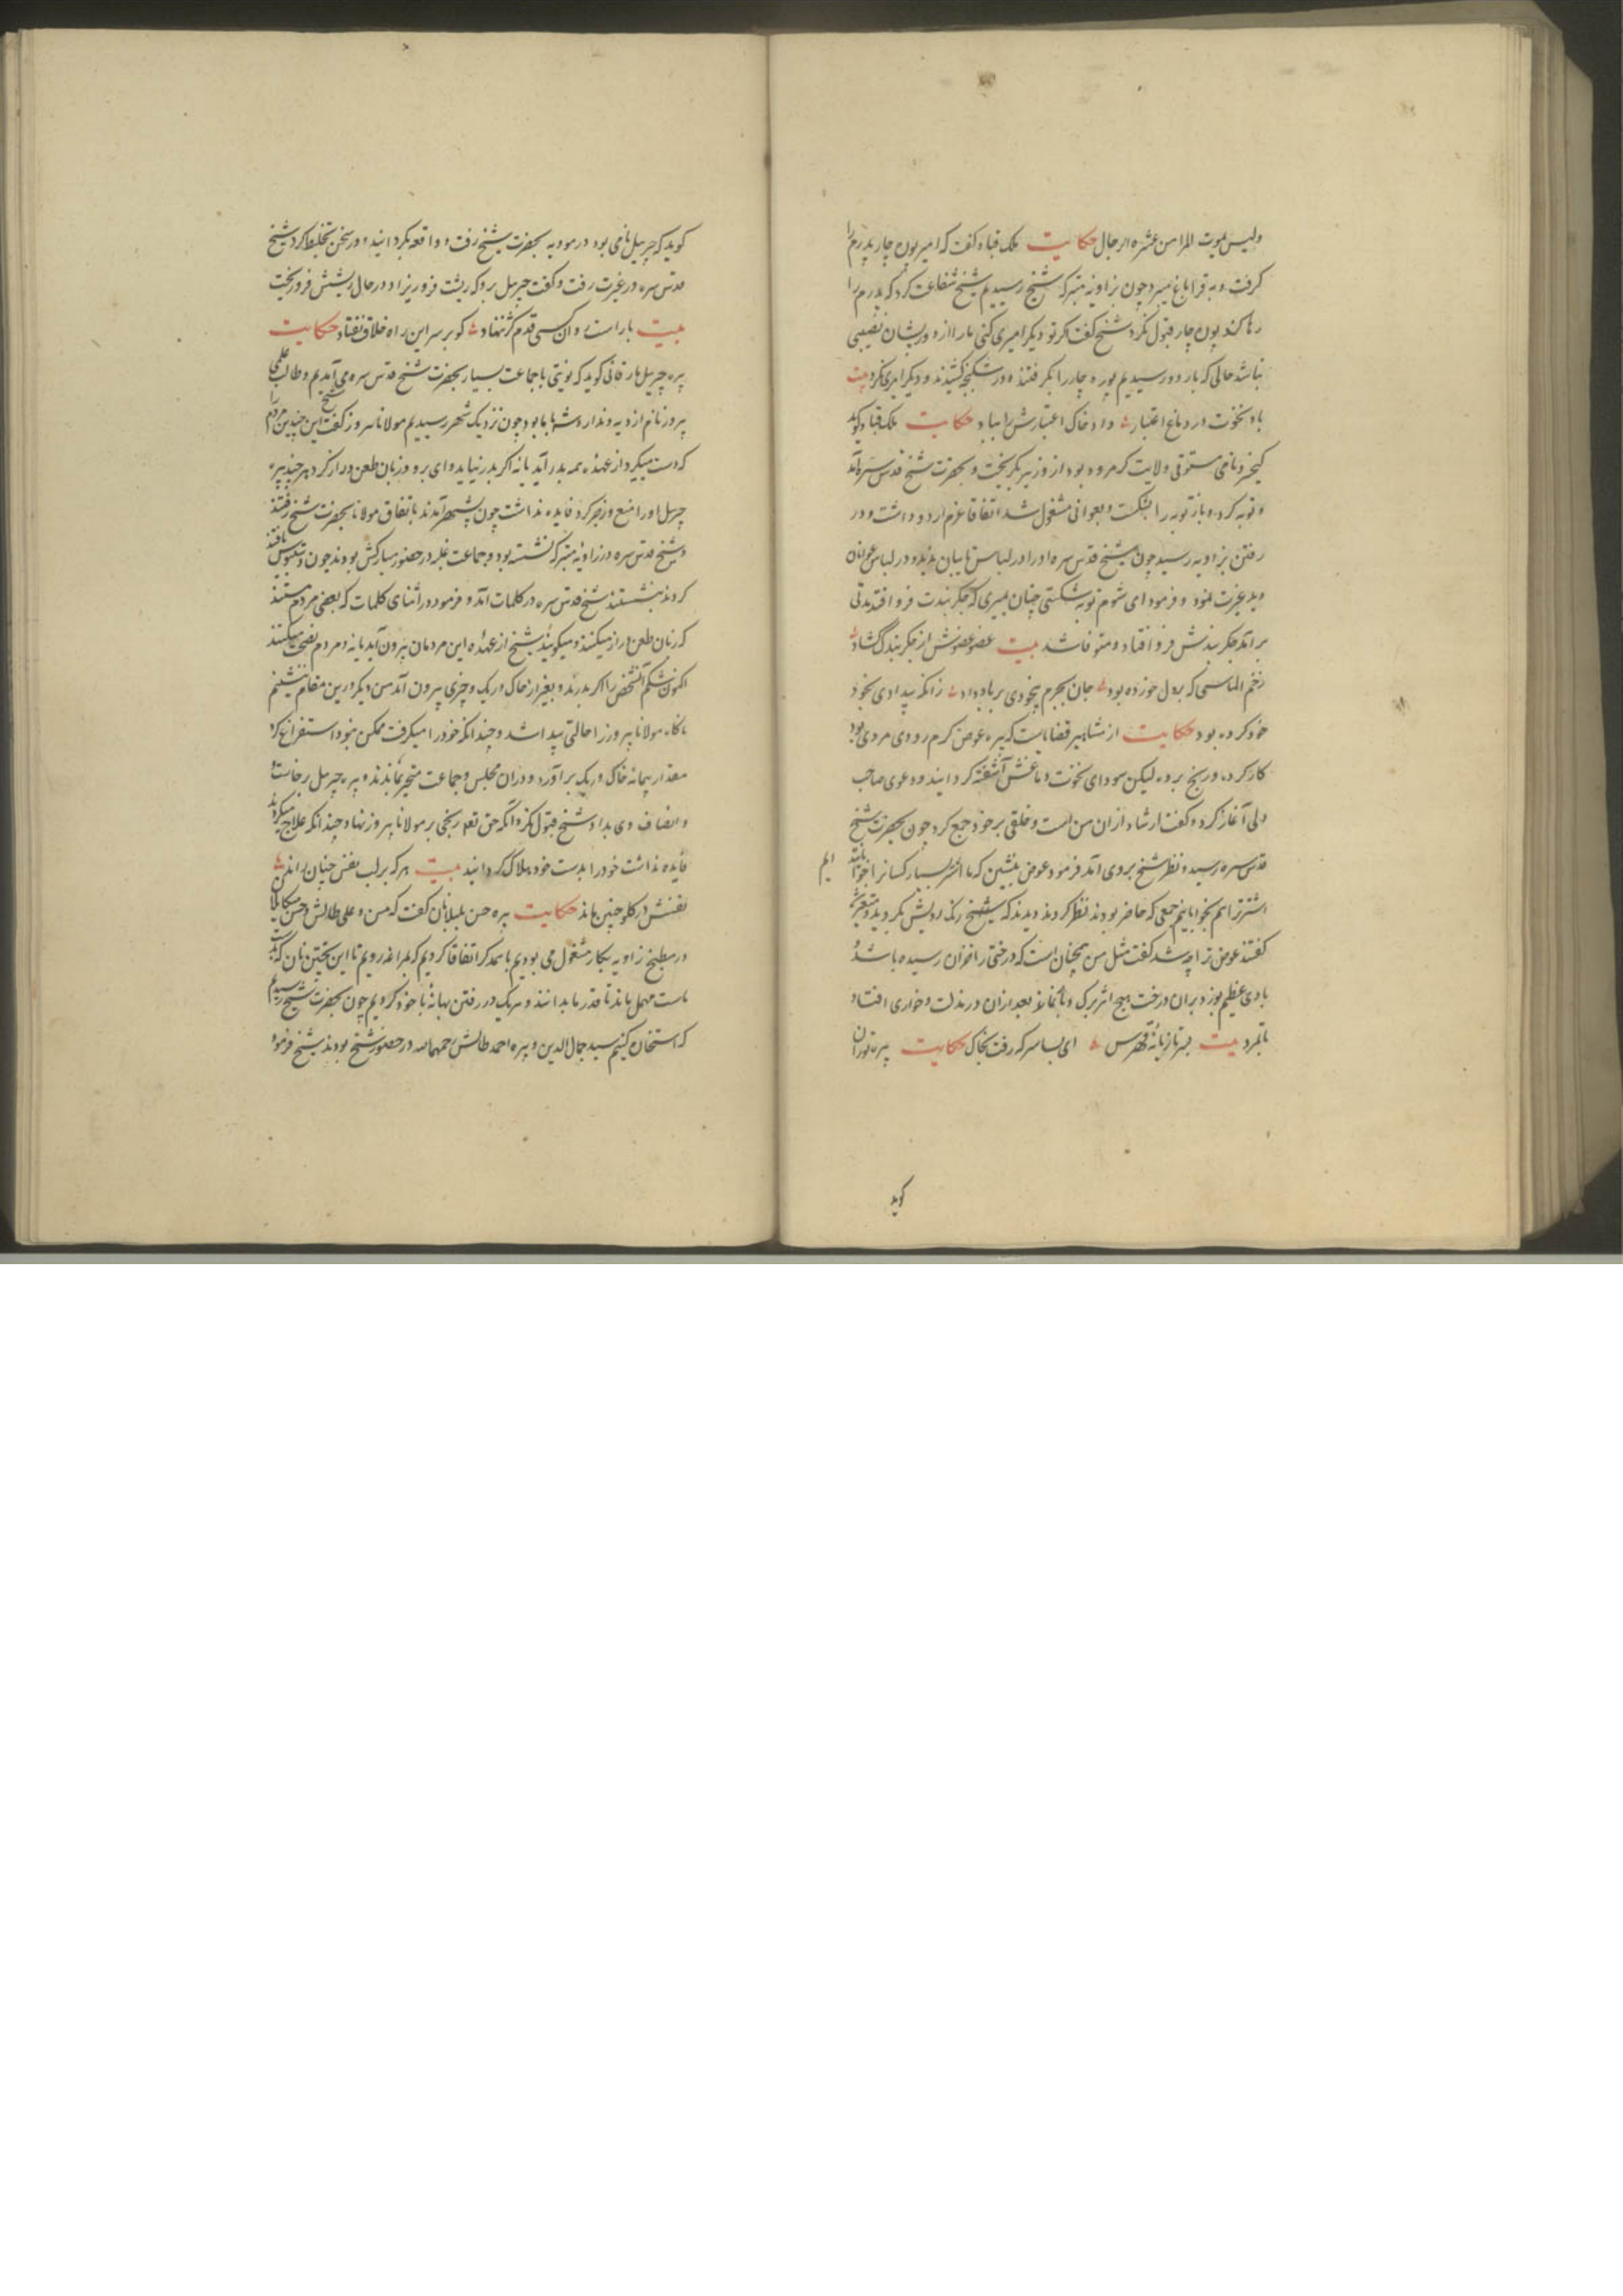 ولیس یموت المرا من عثرة الرجال حکایت ملک قباد گفت که امیر پوره چار پدرم را
کرفت و به قراباغ میبرد چون بزاویه متبرکه شیخ رسیدیم شیخ شفاعت کرد که پدرم را
رها کند پوره چار قبول نکرد شیخ گفت اکر تو دیکر امیری کنی ما را از درویشان نصیبی
نباشد حالی که باردو رسیدیم پوره چار را بکرفتند و در شکنجه کشیدند و دیکر امیری نکرد بیت
باد نخوت در دماغ اعتبار داد خاک اعتبارش را بباد حکایت ملک قباد کوید
کیخسرو نامی مستوفی ولایت کرمرود بود از وزیر بکریخت و بحضرت شیخ قدس سره آمد
و توبه کرد و باز توبه را بشکست و بعوانی مشغول شد اتفاقا عزم اردو داشت و در
رفتن بزاویه رسید چون شیخ قدس سره او را در لباس تایبان ندید و در لباس عوانان
دید غیرت نمود و فرمود ای شوم توبه شکستی چنان بمیری که جکربندت فرو افتد مدتی
برآمد جکربندش فرو افتاد و متوفا شد بیت عضو عضوش از جکربندک کشاد
زخم الماسی که بر دل خورده بود جان بجرم بیخودی بر باد داد زانکه بیدادی بخود
خود کرده بود حکایت از مشاهیر قضایاست که پیره عوض کرمرودی مردی بود
کار کرده و رنج برده لیکن سودای نخوت دماغش آشفته کردانید و دعوی صاحب
دلی آغاز کرد و گفت ارشاد از آن من است و خلقی بر خود جمع کرد چون بحضرت شیخ
قدس سره رسید و نظر شیخ بر وی آمد فرمود عوض بنشین که ما اشتر بسیار کسانرا خوابانیده ایم
اشتر ترا هم بخوابانیم جمعی که حاضر بودند نظر کردند دیدند که شیخ رنک رویش بکردید و متغیر شد
گفتند عوض ترا چه شد گفت مثل من همچنان است که درختی را خزان رسیده باشد و
بادی عظیم بوزد بر آن درخت هیچ اثر برک و بار نماند بعد از آن در مذلت و خواری افتاد
تا بمرد بیت بسر تازیانهٔ قهرس ای بسا سر که رفت بخاک حکایت پیره توران
کوید
کوید که جبرییل نامی بود در مودیه بحضرت شیخ رفت و واقعه بکردانید و در سخن تخلیط کرد شیخ
قدس سره در غیرت رفت و گفت جبرییل برو که ریشت فرو ریزاد در حال ریشش فرو ریخت
بیت با راست روان کسی قدم کژ ننهاد کو بر سر این راه خلاف نفتاد حکایت
پیره جبرییل بارقانی کوید که نوبتی با جماعت بسیار بحضرت شیخ قدس سره می آمدیم و طالب علمی
پیروز نام از دیه دنداروش با ما بود چون نزدیک شهر رسیدیم مولانا پیروز گفت این شیخ چندین مردم را
که دست میکیرد از عهده همه بدر آید یا نه اکر بدر نیاید وای برو و زبان طعن دراز کرد هر چند پیره
جبرییل او را منع و زجر کرد فایده نداشت چون بشهر آمدند باتفاق مولانا بحضرت شیخ رفتند
و شیخ قدس سره در زاویه متبرکه نشسته بود و جماعت غلبه در حضور مبارکش بودند چون دستبوس یافتند
کردند بنشستند شیخ قدس سره در کلمات آمد و فرمود در اثنای کلمات که بعضی مردم هستند
که زبان طعن دراز میکنند و میکویند شیخ از عهده این مردمان بیرون آید یا نه و مردم نصیحت میکنند
اکنون شکم آن شخص را اکر بدرند و بغیر از خاک و ریک و چیزی بیرون آمد من دیکر درین مقام ننشینم
ناکاه مولانا پیروز را حالتی پیدا شد و چندانکه خود را میکرفت ممکن نبود استفراغ کرد
مقدار پیمانه خاک و ریک برآورد و در آن مجلس و جماعت متحیر بماندند و پیره جبرییل برخاست و
و انصاف وی بداد شیخ قبول نکرد آنکه حق تعالی رنجی بر مولانا پیروز نهاد و چندانکه علاج میکردند
فایده نداشت خود را بدست خود هلاک کردانید بیت هر که بر لب نفس چنان راند
نفسش در کلو چنین ماند حکایت پیره حسن بلبلانان گفت که من و علی طالش و حسن میکاییل
در مطبخ زاویه بکار مشغول می بودیم با همدکر اتفاقا کردیم که بمراغه رویم تا این پختن نان که بدست
ماست مهمل بماند تا قدر ما بدانند و هر یک در رفتن بهانهٔ با خود کردیم چون بحضرت شیخ رسیدیم
که استخاره کنیم سید جمال الدین و پیره احمد طالش رحمهما الله در حضور شیخ بودند شیخ فرمود